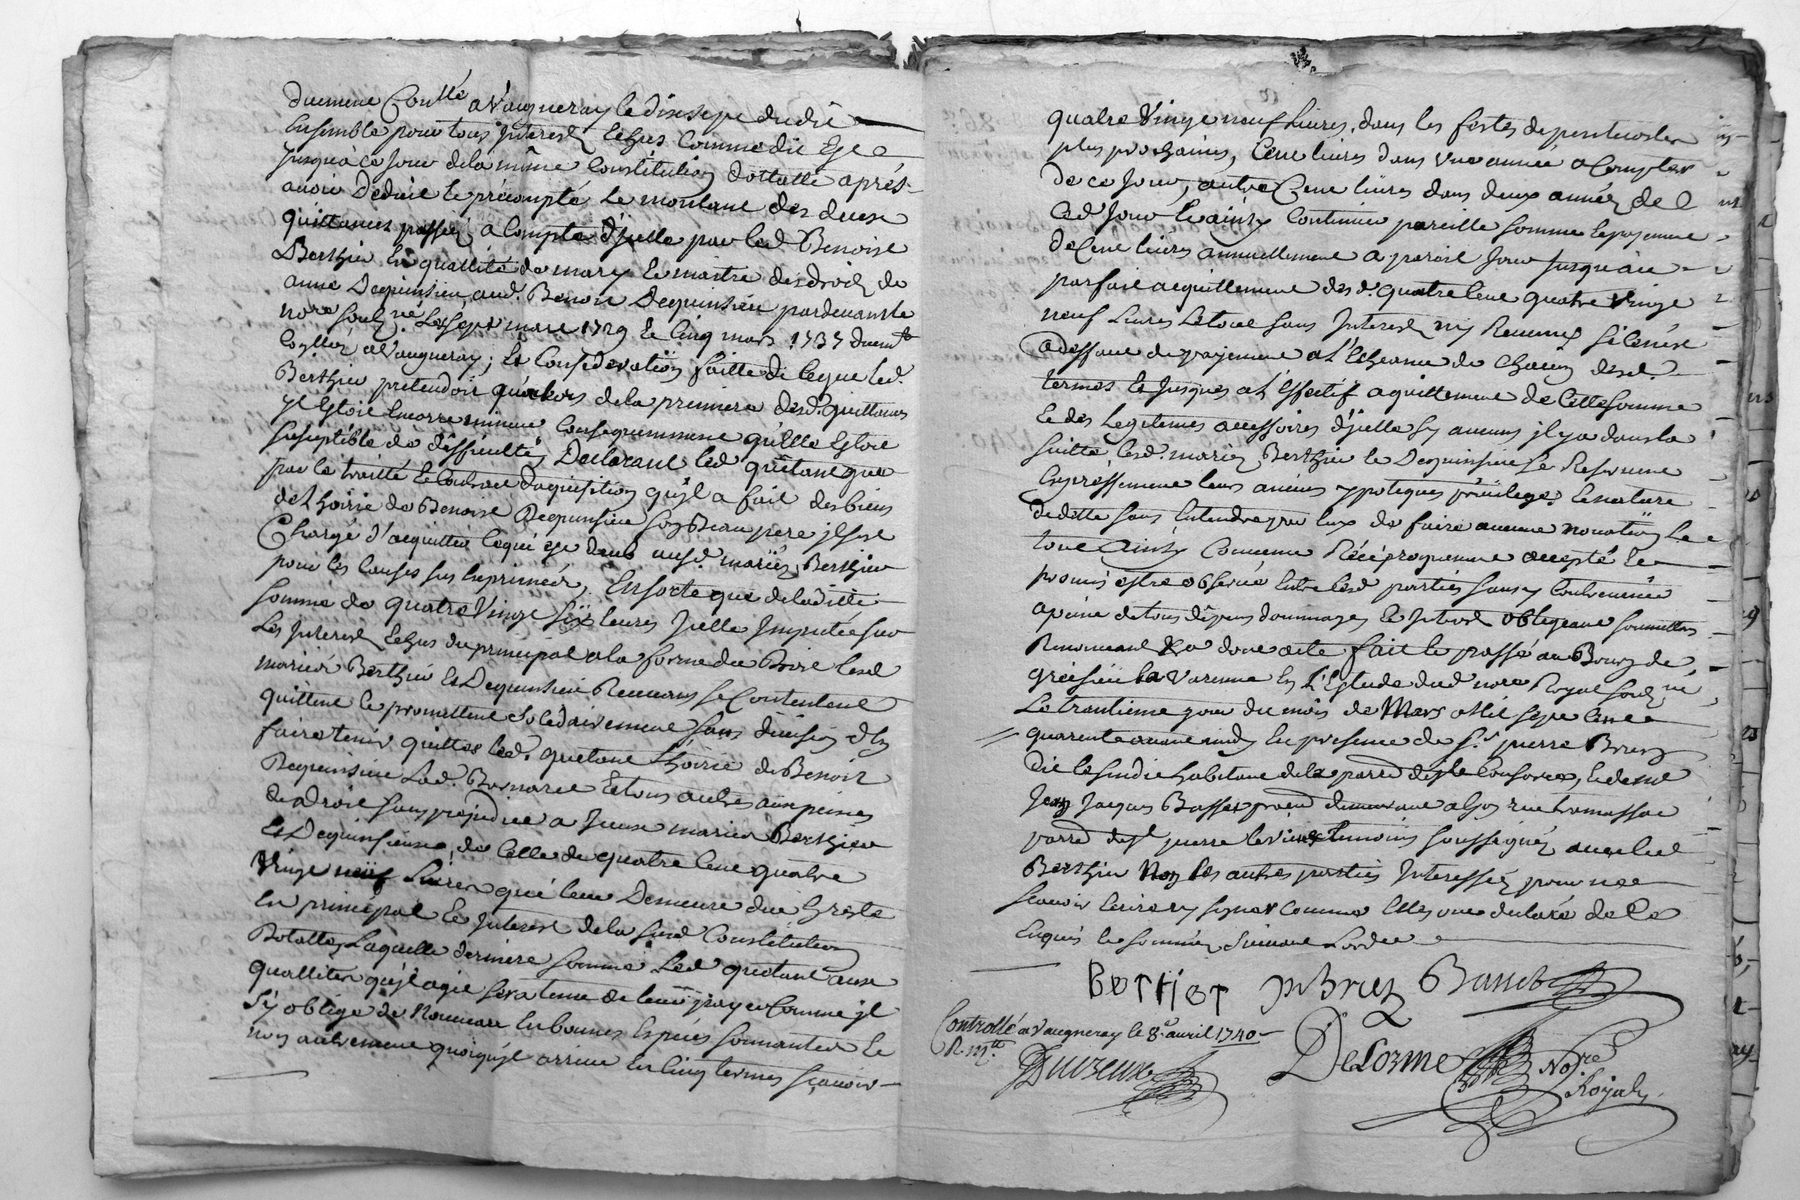 duement Con.llé a Vaugneray le dixsept dudit
Ensemble pour tous Interest Echus comme dit Est
Jusqu'à ce Jour de la même Constitution dottalle après
avoir Déduit et précompté le montant des deux
quittances passées a Compte d'jcelle par led Benoist
Berthier En quallité de mary et maitre des droits de
anne Dequinsieu aud. Benoit Dequinsieu pardevant le
nore souz.né Les sept mars 1729 et cinq mars 1737 duemt
Conllez a Vaugneray; En Considération faitte de ce que led.
Berthier prétendoit qu'alors de la premiere desd. quittances
jl Estoit Encorre mineur Consequemment qu'Elle Estoit
suseptible de difficultés, Declarant led quetant que
par le traitté et Contract d'aquisition qu'jl a fait des biens
de L'hoirie de Benoist Dequinsieu son Beau pere jl s'est
Chargé d'acquitter ce qui est deub ausd. mariés Berthier
pour les causes sus Exprimées, En sorte que de la ditte
somme de quatre Vingt six livres Jcelle Imputée sur
Les Interest Echus du principal a la forme du Droit lesd
mariés Berthier Et Dequinsieu Recevans se Contentent
quittent et promettent solidairement sans division d'En
faire tenir quittes led. quetant L'hoirie de Benoit
Dequinsieu Lad. Bonnard Et tous autres aux peines
de Droit sans préjudice a Jceux mariés Berthier
Et Dequinsieu de Celle de quatre Cent quatre
Vingt neuf Livres qui leur Demeure due de reste
En principal et Interest de la susd Constitution
Dotalle, Laquelle derniere somme Led quetant aux
quallités qu'jl agit sera tenu de leur payer Comme jl
s'y oblige de Nouveau En bonnes Espèces sonnantes et
non autrement quoiqu'jl arrive En Cinq termes sçavoir
quatre Vingt neuf Livres, dans les festes de pentecostes
plus prochaines, Cent livres dans une année a Compter
de ce Jour, autres Cent livres dans deux années de
Led Jour Et ainsy Continuer pareille somme et payement
de Cent livres annuellement a pareil Jour Jusqu'au
parfait acquittement desd. quatre Cent quatre Vingt
neuf Livres Le tout sans Interest ny Revenus si ce n'est
a deffaut de payement a L'Echeance de Chacun desd.
termes et Jusques a L'Effectif aquittement de Cette somme
Et des Legitimes accessoires d'jcelle sy aucuns jl y a dans la
suitte Lesd. mariés Berthier et Dequinsieu se Reservent
Expressement leurs anciens ypoteques privileges Et nature
de dette sans Entendre par Eux de faire aucune novation Le
tout Ainsy Convenu Réciproquement accepté Et
promis estre observé Entre lesd parties sans y Contrevenir
a peine de tous dépens dommages Et Interest obligeant soumettant
Renonceant &a dont acte fait et passé au Bourg de
grézieu La Varenne En L'Estude dud nore Royal souz.né
Le trantieme jour du mois de Mars Mil sept Cent
quarente avant midy En presence de s.r pierre Bruy
Dit Le habitant de la parre de ste Consorce, Et de me
Jean Jacques demeurant a Lyon rue tramassac
parre de st pierre le vieux temoins soussignés avec led
Berthier Non Les autres parties Interessées pour ne
sçavoir Ecrire ny signer comme Elles ont declaré de ce
Enquis et sommées suivant L'ordce
BERTHIER p Bruy
Controllé a Vaugneray le 8.e avril 1740
R mtt
DeLorme Nore
Royal